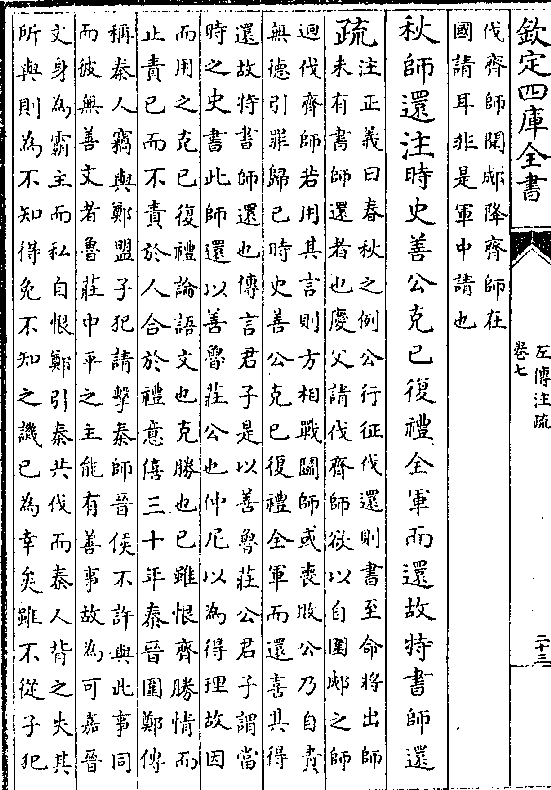 欽定四庫全書
左傳注疏
卷七
二十三
伐齊師聞郕降齊師在
國請耳非是軍中請也
秋師還注時史善公克己復禮全軍而還故特書師還
疏
注正義曰春秋之例公行征伐還則書至命將出師
未有書師還者也慶父請伐齊師欲以自圍郕之師
迴伐齊師若用其言則方相戰鬭師或喪敗公乃自責
無德引罪歸己時史善公克己復禮全軍而還喜其得
還故特書師還也傳言君子是以善魯莊公君子謂當
時之史書此師還以善魯莊公也仲尼以為得理故因
而用之克己復禮論語文也克勝也己雖恨齊勝情而
止責己而不責於人合於禮意僖三十年秦晉圍鄭傳
稱秦人竊與鄭盟子犯請擊秦師晉侯不許與此事同
而彼無善文者魯莊中平之主能有善事故為可嘉晉
文身為霸主而私自恨鄭引秦共伐而秦人背之失其
所與則為不知得免不知之譏已為幸矣雖不從子犯